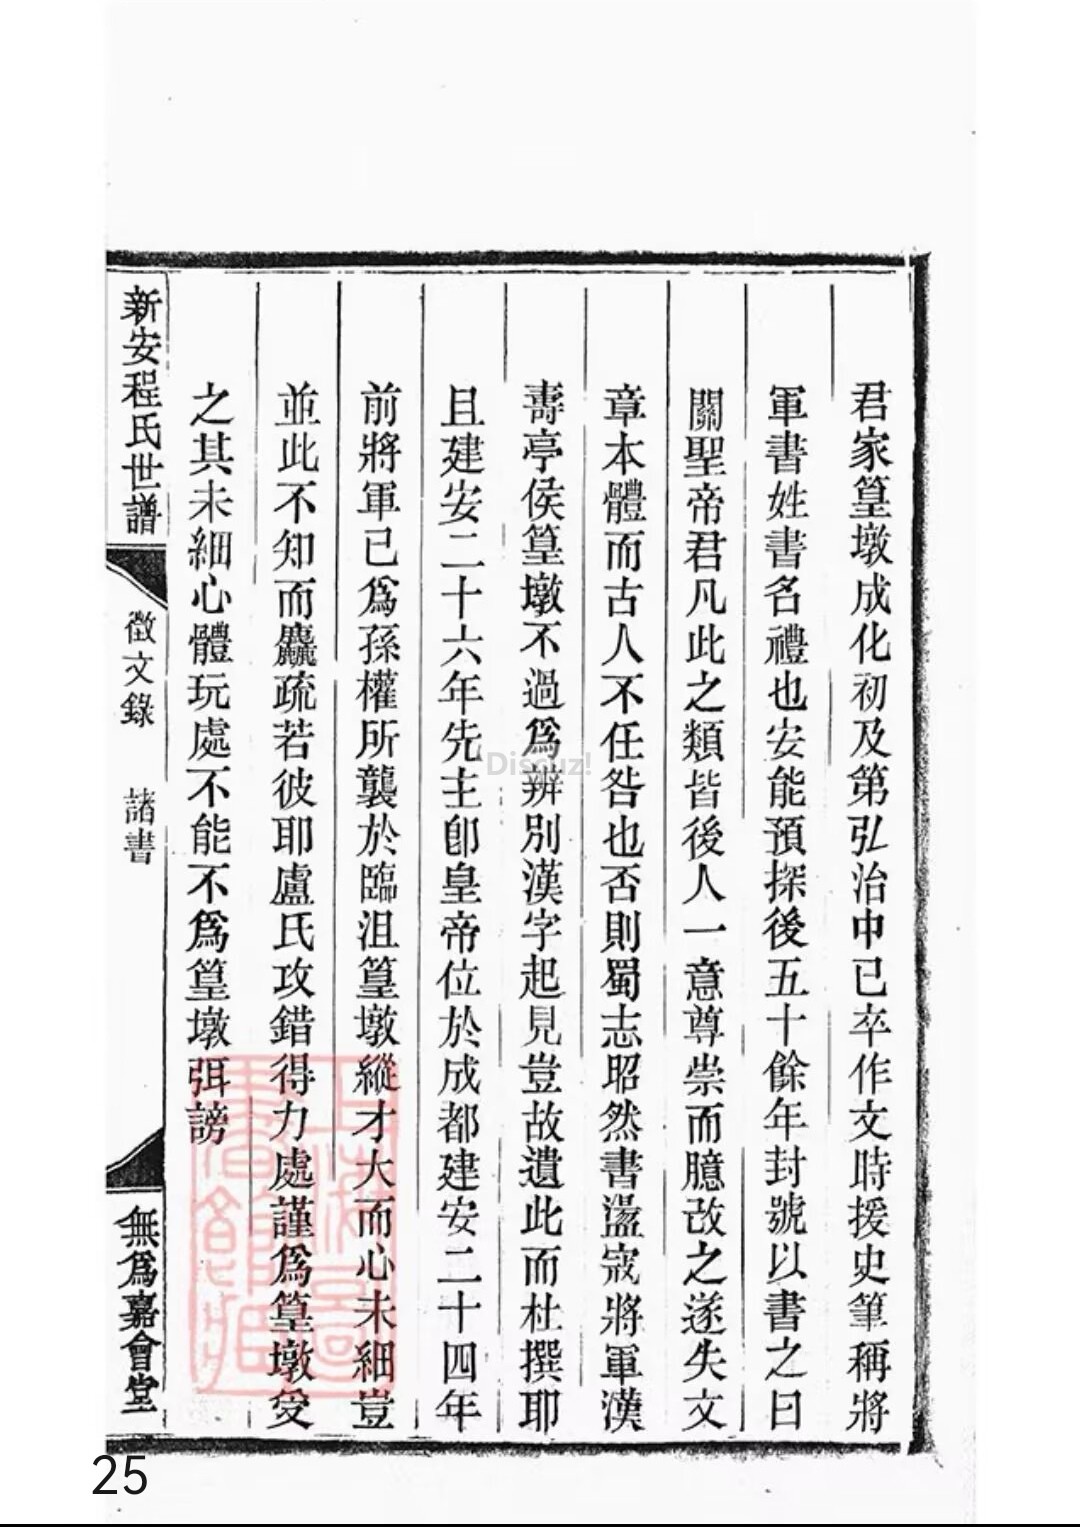 君家篁墩成化初及第弘治中已卒作文時援史筆稱將
軍書姓書名禮也安能預探後五十餘年封號以書之曰
關聖帝君凡此之類皆後人一意尊崇而臆改之遂失文
章本體而古人不任咎也否則蜀志昭然書盪寇將軍漢
壽亭侯篁墩不過爲辨別漢字起見豈故遺此而杜撰耶
且建安二十六年先主卽皇帝位於成都建安二十四年
前將軍已爲孫權所襲於臨沮篁墩縱才大而心未細豈
並此不知而麤疏若彼耶盧氏攻錯得力處謹爲篁墩受
之其未細心體玩處不能不爲篁墩弭謗
新安程氏世譜
徵文錄 諸書
無爲嘉會堂
Discuz!
25